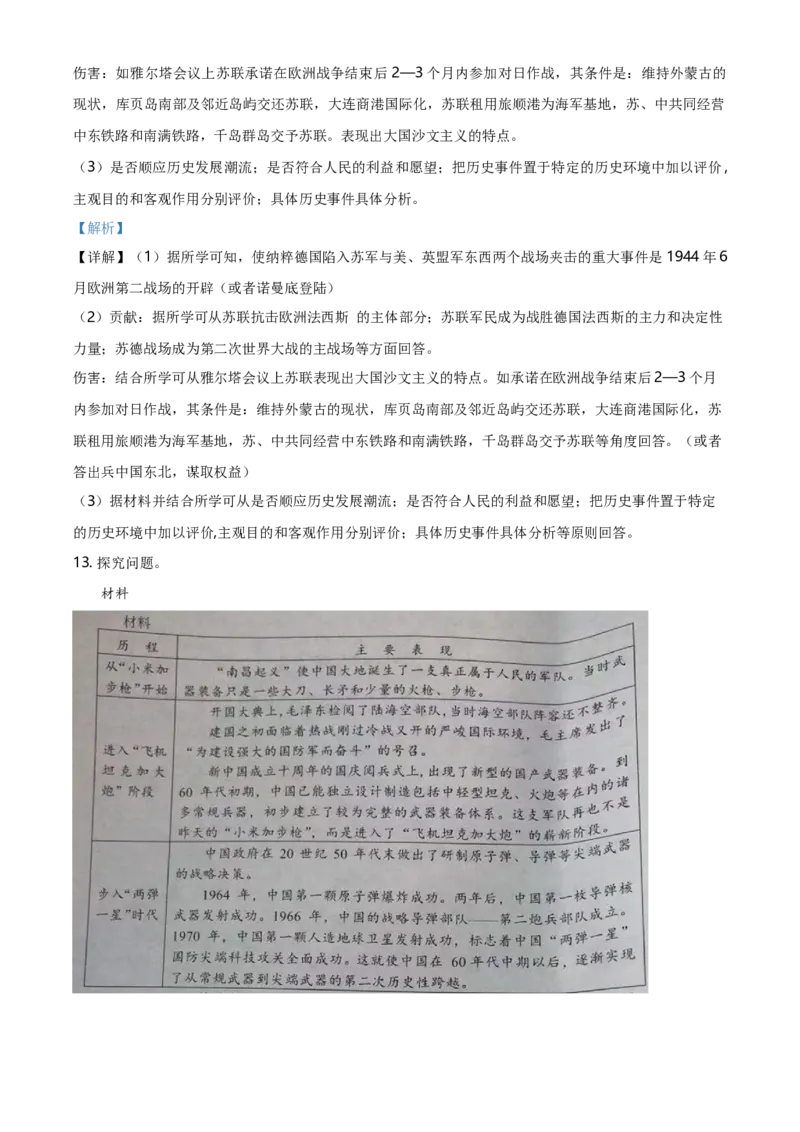 伤害：如雅尔塔会议上苏联承诺在欧洲战争结束后 2—3 个月内参加对日作战，其条件是：维持外蒙古的
现状，库页岛南部及邻近岛屿交还苏联，大连商港国际化，苏联租用旅顺港为海军基地，苏、中共同经营
中东铁路和南满铁路，千岛群岛交予苏联。表现出大国沙文主义的特点。
（3）是否顺应历史发展潮流；是否符合人民的利益和愿望；把历史事件置于特定的历史环境中加以评价，
主观目的和客观作用分别评价；具体历史事件具体分析。
【解析】
【详解】（1）据所学可知，使纳粹德国陷入苏军与美、英盟军东西两个战场夹击的重大事件是 1944 年 6
月欧洲第二战场的开辟（或者诺曼底登陆）
（2）贡献：据所学可从苏联抗击欧洲法西斯 的主体部分；苏联军民成为战胜德国法西斯的主力和决定性
力量；苏德战场成为第二次世界大战的主战场等方面回答。
伤害：结合所学可从雅尔塔会议上苏联表现出大国沙文主义的特点。如承诺在欧洲战争结束后 2—3 个月
内参加对日作战，其条件是：维持外蒙古的现状，库页岛南部及邻近岛屿交还苏联，大连商港国际化，苏
联租用旅顺港为海军基地，苏、中共同经营中东铁路和南满铁路，千岛群岛交予苏联等角度回答。（或者
答出兵中国东北，谋取权益）
（3）据材料并结合所学可从是否顺应历史发展潮流；是否符合人民的利益和愿望；把历史事件置于特定
的历史环境中加以评价,主观目的和客观作用分别评价；具体历史事件具体分析等原则回答。
13. 探究问题。
材料
材料
历 程
主 要 表 现
从“小米加
步枪”开始
“南昌起义”使中国大地诞生了一支真正属于人民的军队。当时武
器装备只是一些大刀、长矛和少量的火枪、步枪。
进入“飞机
坦克加大
炮”阶段
开国大典上,毛泽东检阅了陆海空部队,当时海空部队阵容还不整齐。
建国之初面临着热战刚过冷战又开的严峻国际环境，毛主席发出了
“为建设强大的国防军而奋斗”的号召。
新中国成立十周年的国庆阅兵式上,出现了新型的国产武器装备。到
60 年代初期，中国已能独立设计制造包括中轻型坦克、火炮等在内的诸
多常规兵器，初步建立了较为完整的武器装备体系。这支军队再也不是
昨天的“小米加步枪”，而是进入了“飞机坦克加大炮”的崭新阶段。
步入“两弹
一星”时代
中国政府在 20 世纪 50 年代末做出了研制原子弹、导弹等尖端武器
的战略决策。
1964 年，中国第一颗原子弹爆炸成功。两年后，中国第一枚导弹核
武器发射成功。1966 年，中国的战略导弹部队——第二炮兵部队成立。
1970 年，中国第一颗人造地球卫星发射成功，标志着中国“两弹一星”
国防尖端科技攻关全面成功。这就使中国在 60 年代中期以后，逐渐实现
了从常规武器到尖端武器的第二次历史性跨越。